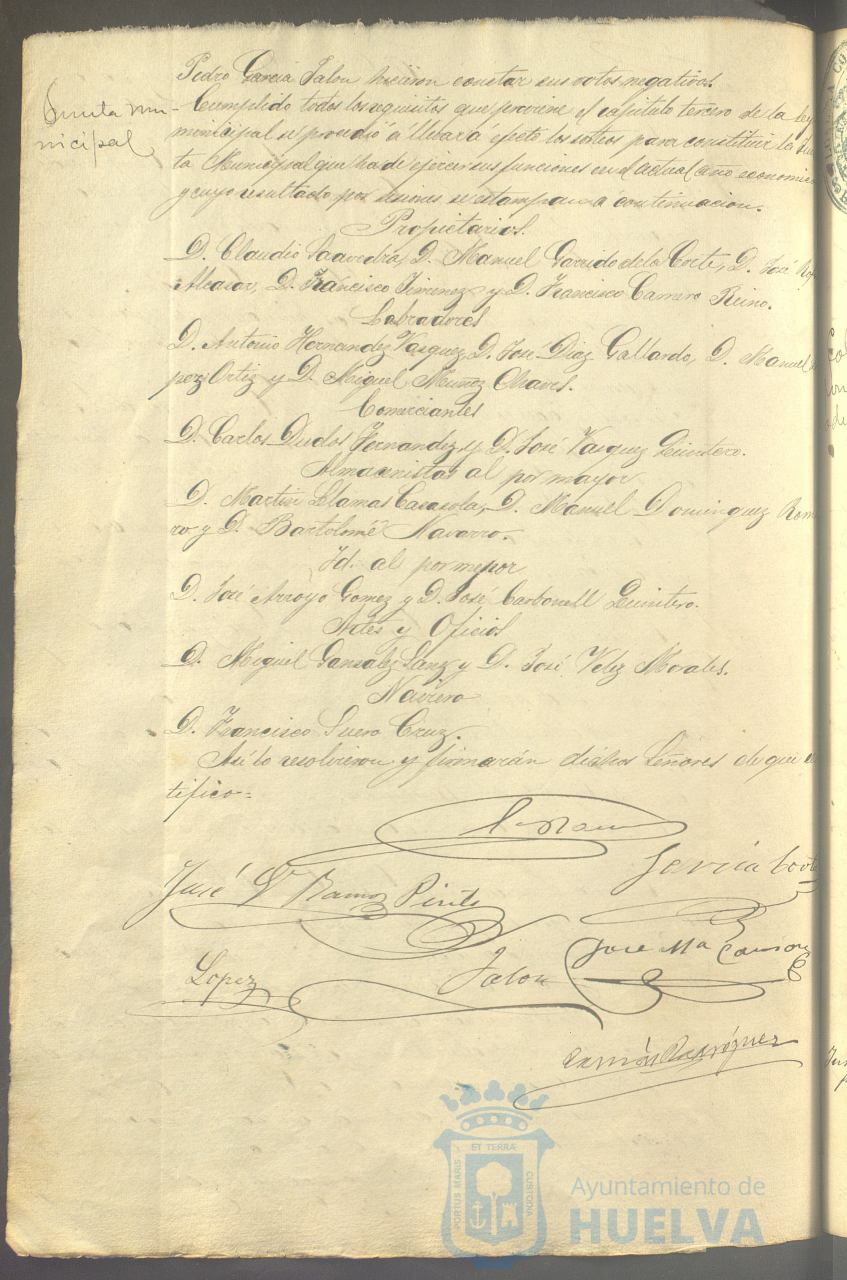 Pedro Garcia Jalon hicieron constar sus votos negativos.
Junta mu-
nicipal
Cumplido todos los requisitos que previene el capitulo tercero de la ley
municipal se procedió á llevar á efecto los sorteos para constituir la Jun
ta Municipal que ha de ejercer sus funciones en el actual año economico
y cuyo resultado por secciones se estampan á continuacion.
Propietarios.
D. Claudio Saavedra, D. Manuel Garrido de la Corte, D. José
Alcazar, D. Francisco Jimenez y D. Francisco Carrero Reino.
Labradores
D. Antonio Hernandez Vasquez, D. José Diaz Gallardo, D. Manuel
pez Ortiz y D. Miguel Muñoz Chaves.
Comerciantes
D. Carlos Dudos Fernandez y D. José Vasquez Quintero.
Almacenistas al por mayor
D. Martin Llamas Casasola, D. Manuel Dominguez Rom
ro y D. Bartolomé Navarro.
Id. al por menor
D. José Arroyo Gomez y D. José Carbonell Quintero.
Artes y Oficios
D. Miguel Gonzalez Sanz y D. José Velez Morales.
Naviero
D. Francisco Suero Cruz.
Asi lo resolvieron y firmarán dichos Señores de que
tifico=
Garcia
José Ramos Pinto
Lopez
Jalon
Jose Mª
Ramón Rodríguez
ET TERRÆ
PORTUS MARIS
CUSTODIA
Ayuntamiento de
HUELVA